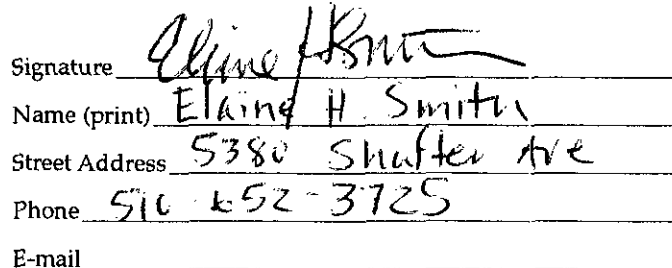 Signature Elaine H Smith
Name (print) Elaine H. Smith
Street Address 5380 Shafter Ave
Phone 510 652-3725
E-mail